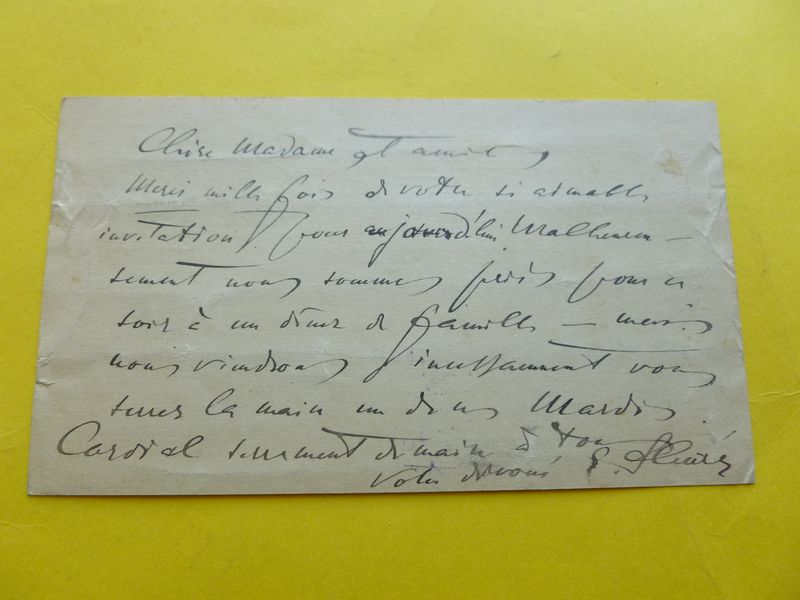 Chère Madame et amie,
Merci mille fois de votre si aimable
invitation pour aujourd'hui. Malheureu-
sement nous sommes pris pour ce
soir à un dîner de famille — mais
nous viendrons incessamment vous
serrer la main un de vos Mardis.
Cordial serrement de main à tous
Votre dévoué